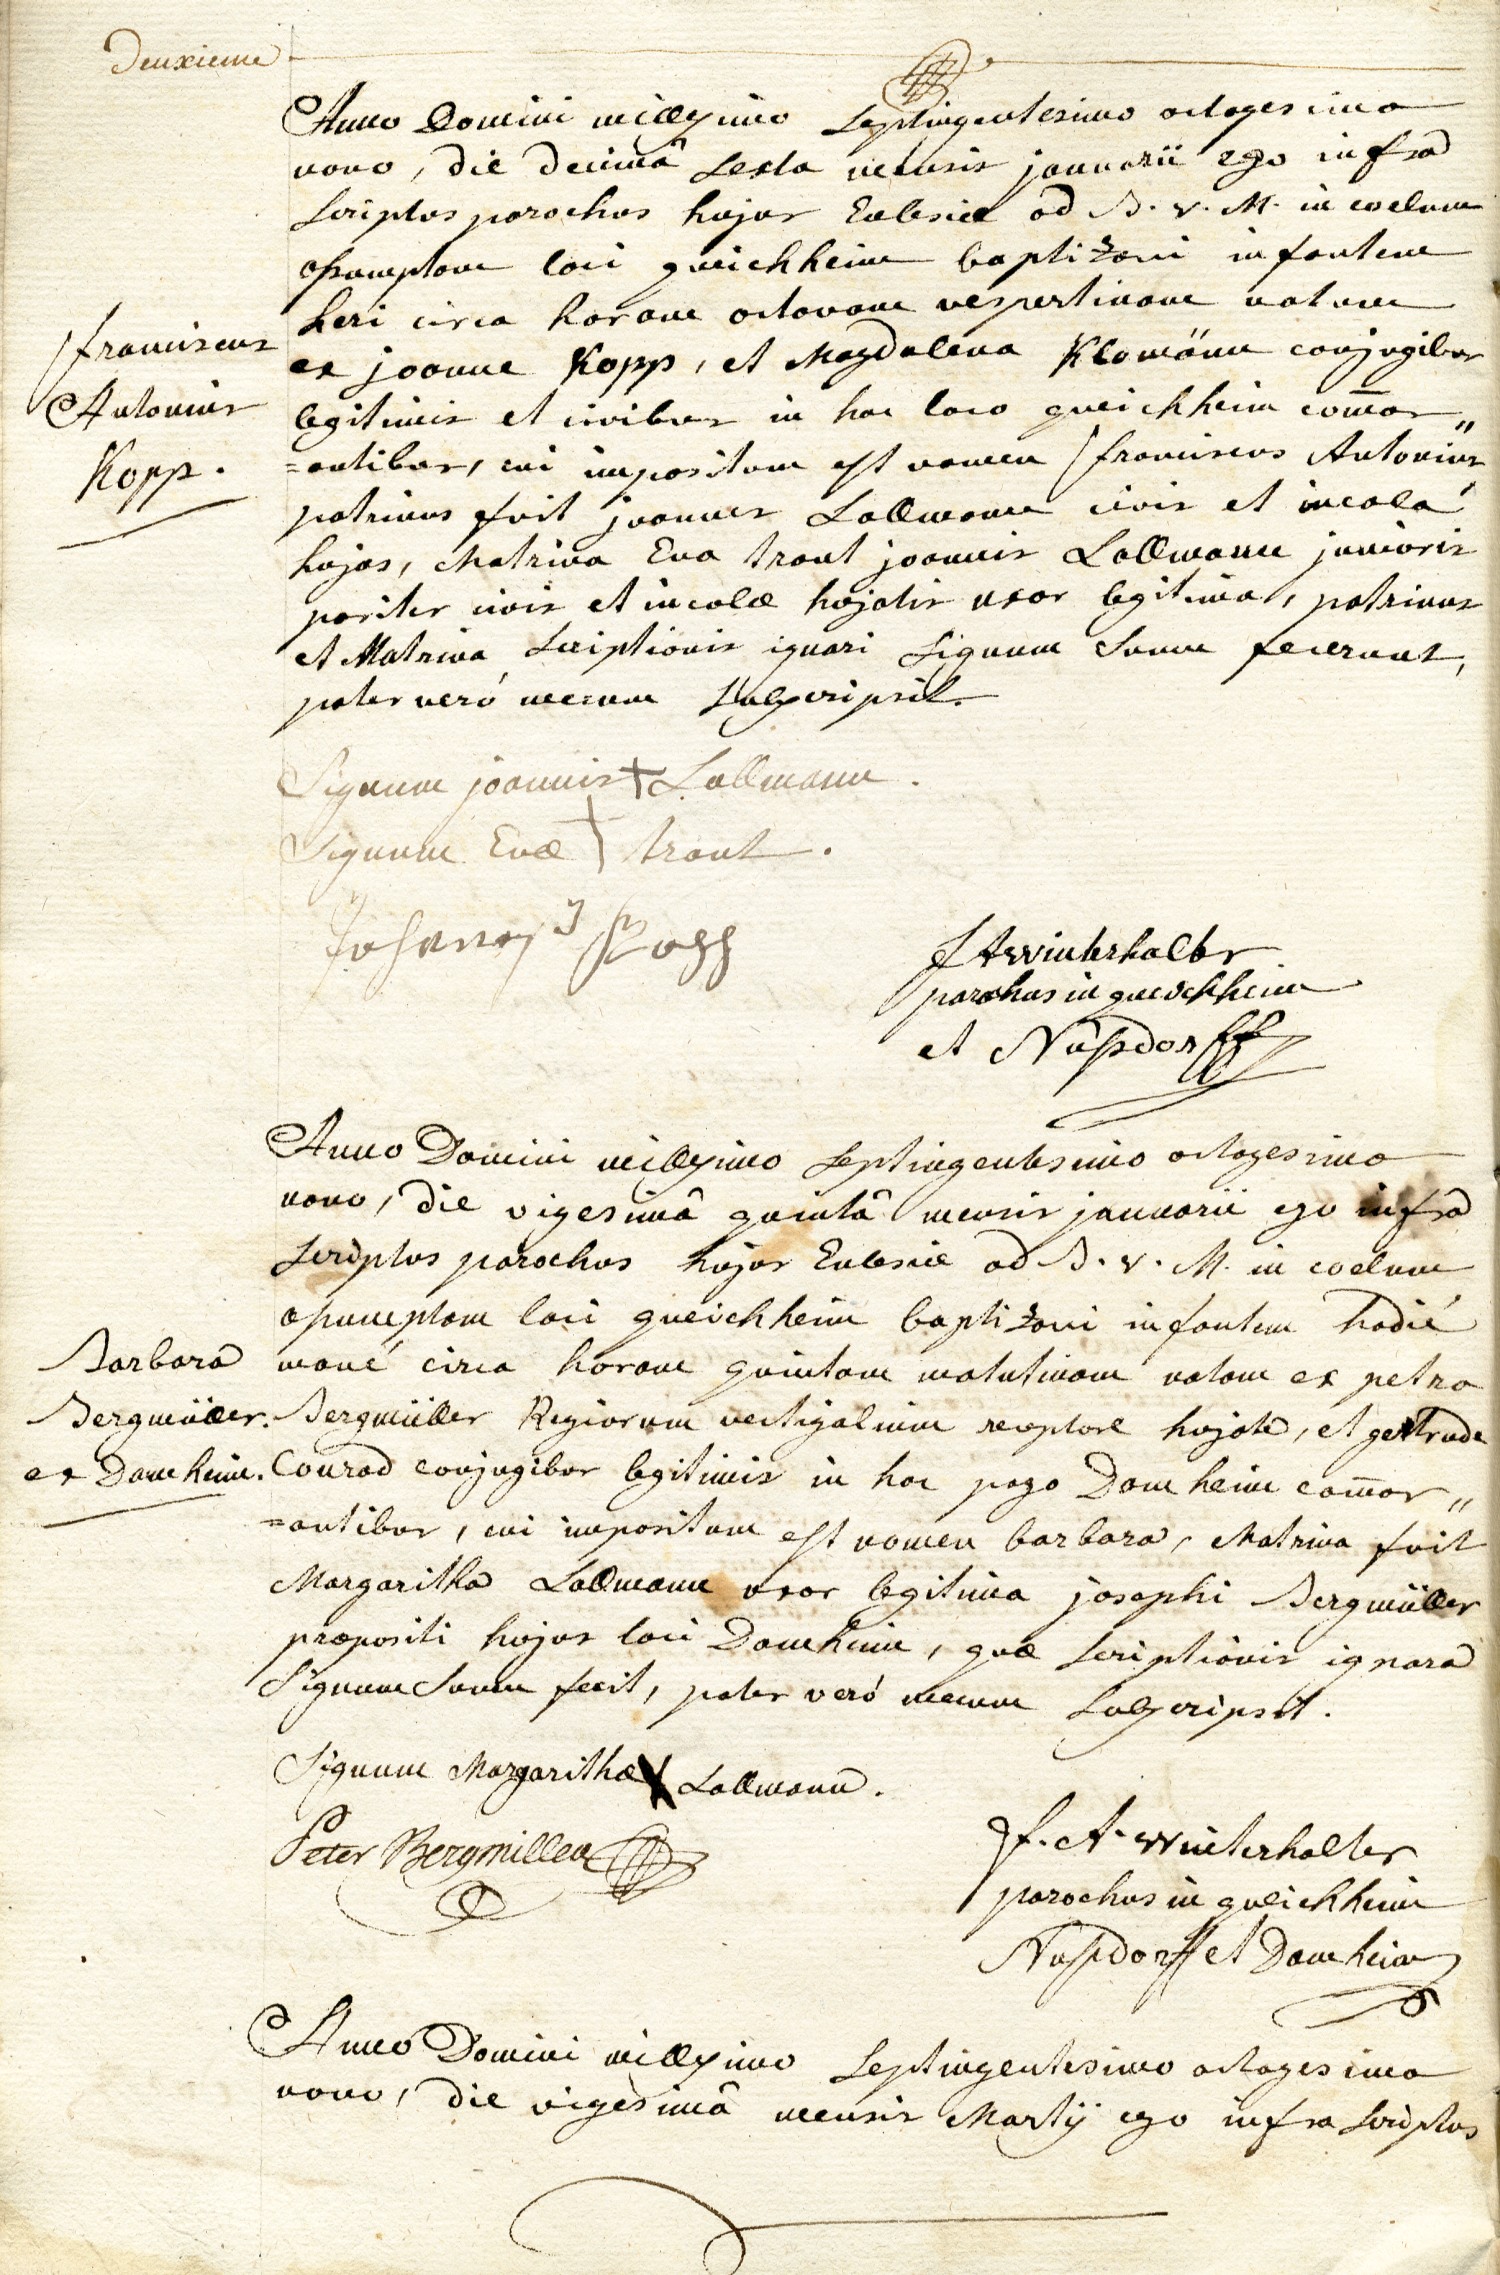 Deuxieme
Anno Domini millesimo Septingentesimo octogesimo
nono, die decimâ sexta mensis januarii ego infra
scriptus parochus hujus Eclesiæ ad B. V. M. in coelum
assumptam loci queichheim baptizavi infantem
heri circa horam octavam vespertinam natum
ex joanne Kopp, et Magdalena Klomänn conjugibus
legitimis et civibus in hoc loco queichheim com̄or„
=antibus, cui impositum est nomen franciscus Antonius
patrinus fuit joannes Lallmann civis et incola
hujas, Matrina Eva traut joannis Lallmann junioris
pariter civis et incolæ hujatis uxor legitima, patrinus
et Matrina scriptionis ignari Signum Suum fecerunt,
pater veró mecum subscripsit.
franciscus
Antonius
Kopp.
Signum joannis + Lallmann.
Signum Evæ + traut.
Johannes Kopp
f A winterhalter
parochus in queichheim
et Nußdorff
Anno Domini millesimo Septingentesimo octogesimo
nono, die vigesimâ quintâ mensis januarii ego infra
scriptus parochus hujus Eclesiæ ad B. V. M. in coelum
assumptam loci queichheim baptizavi infantem hodié
mané circa horam quintam matutinam natam ex petro
Bergmüller Regiorum vectigalium receptore hujate, et gertrude
Conrad conjugibus legitimis in hoc pago Damheim com̄or„
=antibus, cui impositum est nomen barbara, Matrina fuit
Margaritha Lallmann uxor legitima josephi Bergmüller
præpositi hujus loci Damheim, quæ scriptionis ignara
Signum Suum fecit, pater veró mecum subscripsit.
Barbara
Bergmüller.
ex Damheim.
Signum Margarithæ X Lallmann.
Peter Bergmiller
f. A. winterhalter
parochus in queichheim
Nußdorff et Damheim
Anno Domini millesimo Septingentesimo octogesimo
nono, die vigesimâ mensis Martij ego infra scriptus